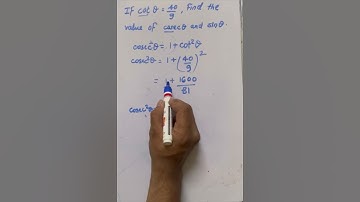 If cotθ = 40/9, Find the
value of cosecθ and sinθ.
cosec²θ = 1 + cot²θ
cosec²θ = 1 + (40/9)²
= 1 + 1600/81
cosec²θ